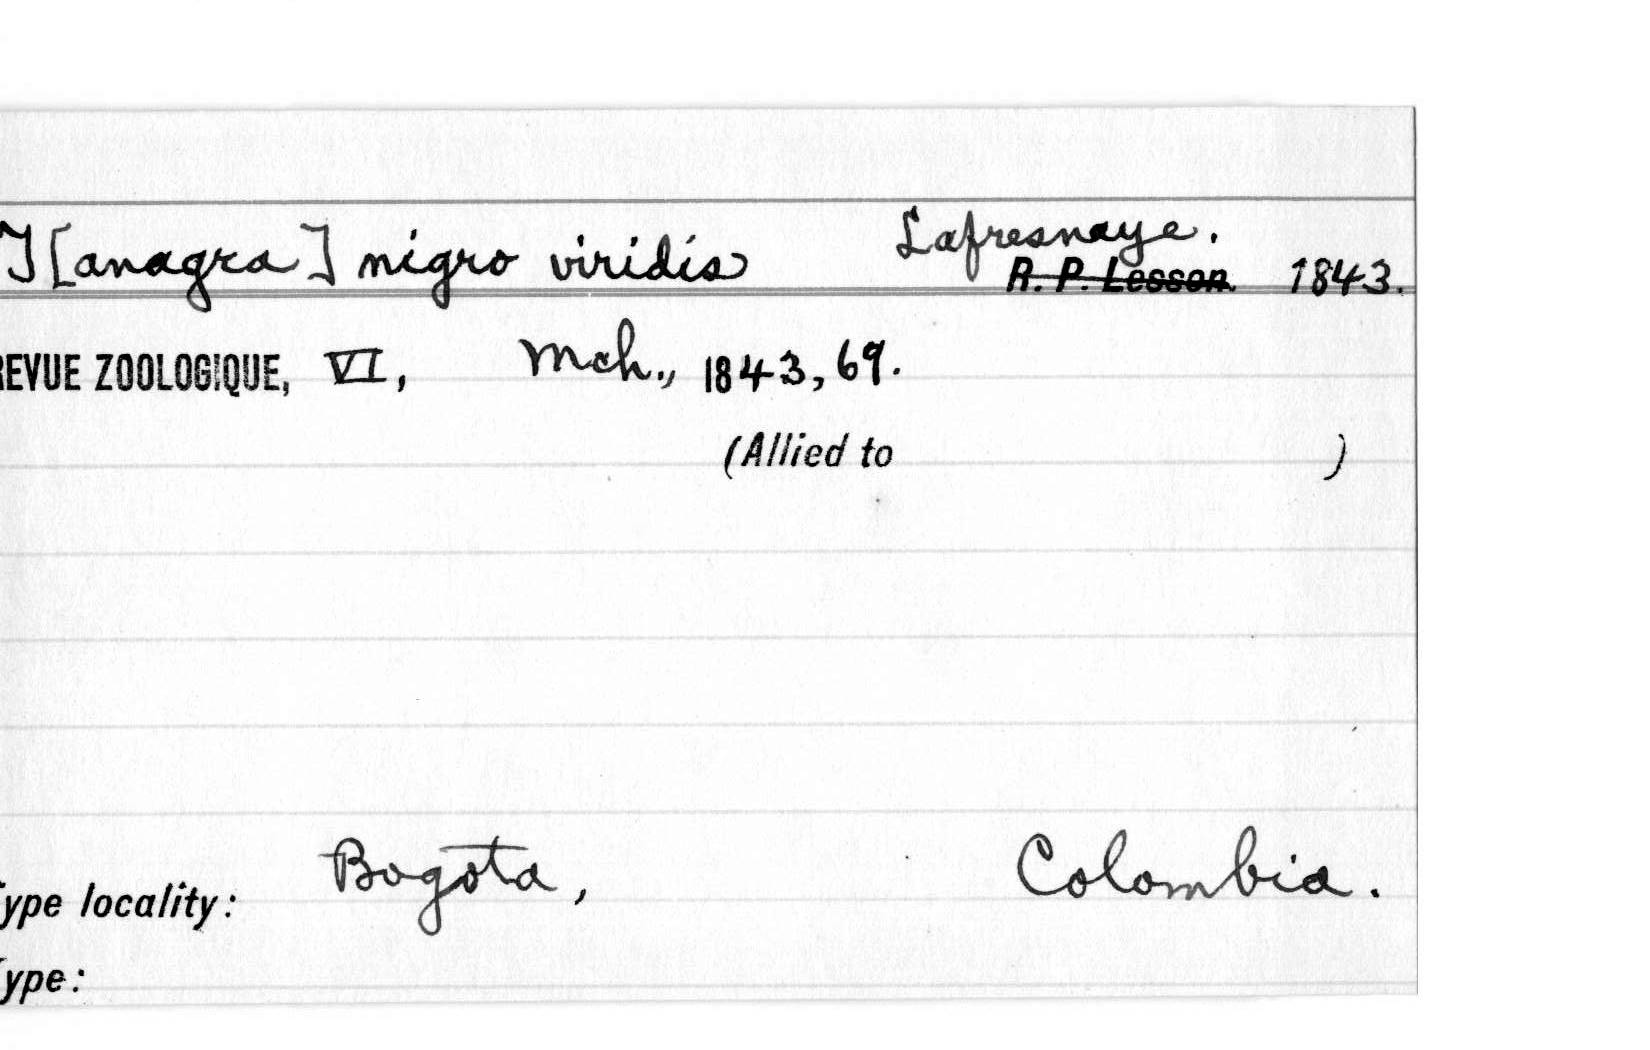 T[anagra] nigro viridis Lafresnaye.
R. P. Lesson. 1843.
REVUE ZOOLOGIQUE, VI, Mch., 1843, 69.
(Allied to )
Type locality: Bogota, Colombia.
Type: